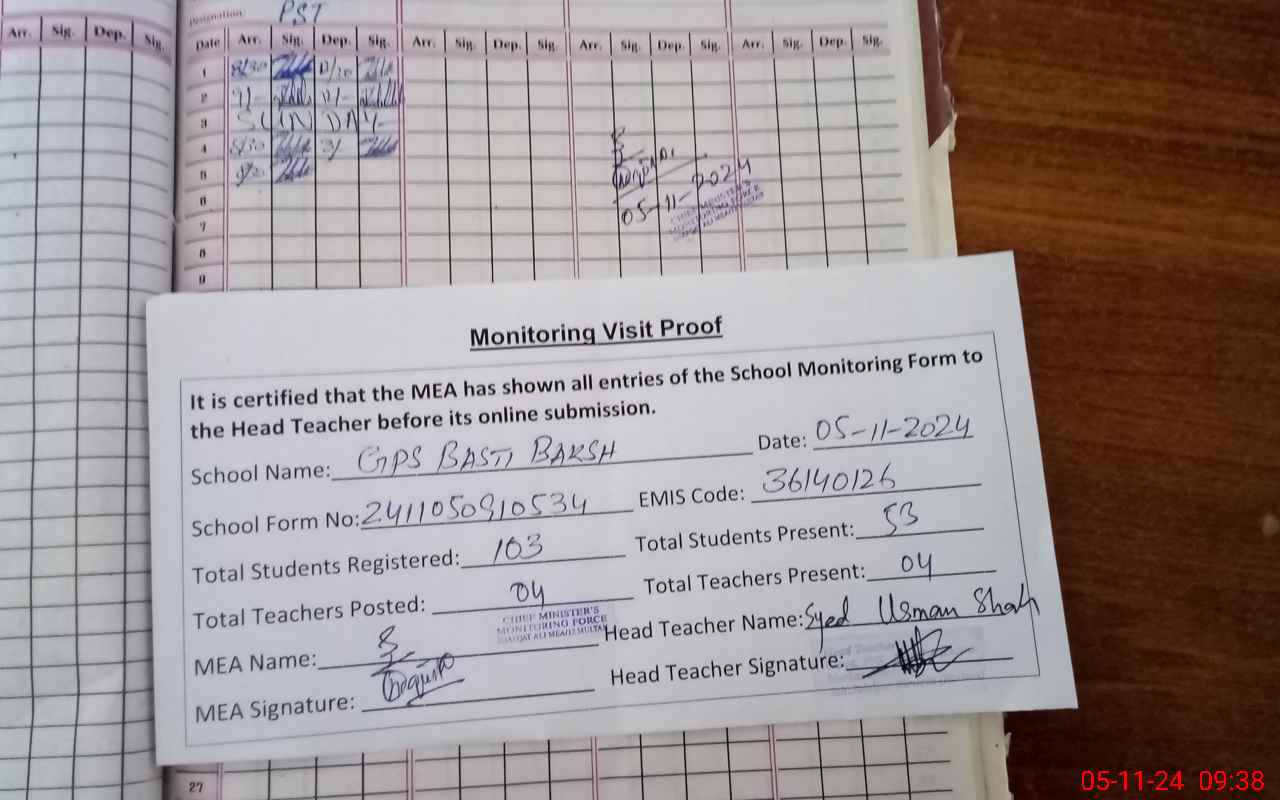 Designation PST
Arr. Sig. Dep. Sig.
Date Arr. Sig. Dep. Sig. Arr. Sig. Dep. Sig. Arr. Sig. Dep. Sig. Arr. Sig. Dep. Sig.
1 8/30
2 9/-
3 SUNDAY
4 8/30 3/
5
6
05-11-2024
CHIEF MINISTER'S
MONITORING FORCE
7
8
9
Monitoring Visit Proof
It is certified that the MEA has shown all entries of the School Monitoring Form to
the Head Teacher before its online submission.
School Name: GPS BASTI BAKSH Date: 05-11-2024
School Form No: 2411050910534 EMIS Code: 36140126
Total Students Registered: 103 Total Students Present: 53
Total Teachers Posted: 04 Total Teachers Present: 04
CHIEF MINISTER'S
MONITORING FORCE
MEA Name: Head Teacher Name: Syed Usman Shah
MEA Signature: Head Teacher Signature:
27
05-11-24 09:38